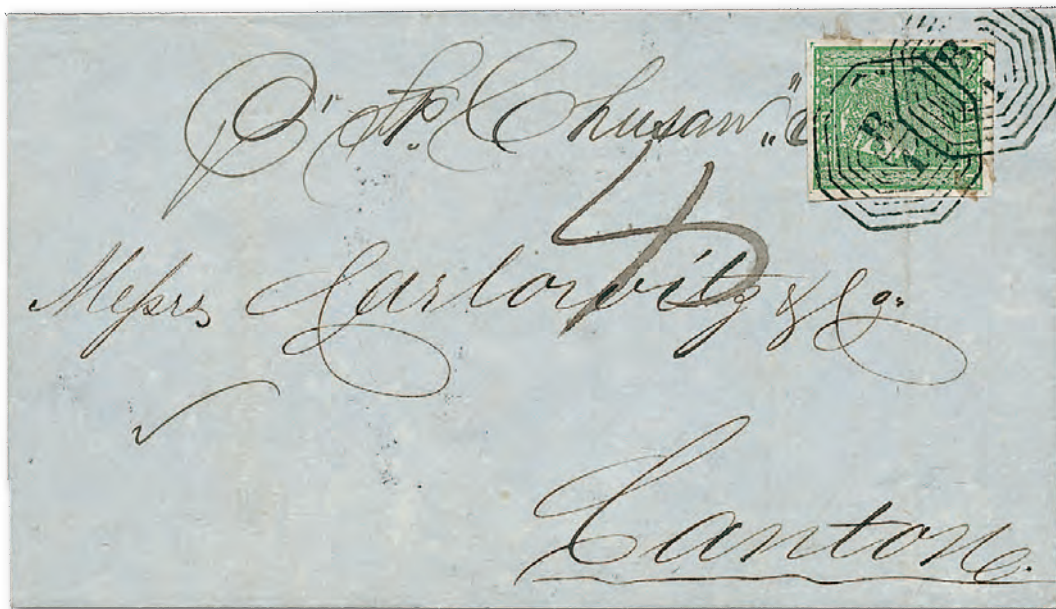 P "Stp. Chusan"
4
Messrs Carlowitz & Co.
Canton
B
1
B
1